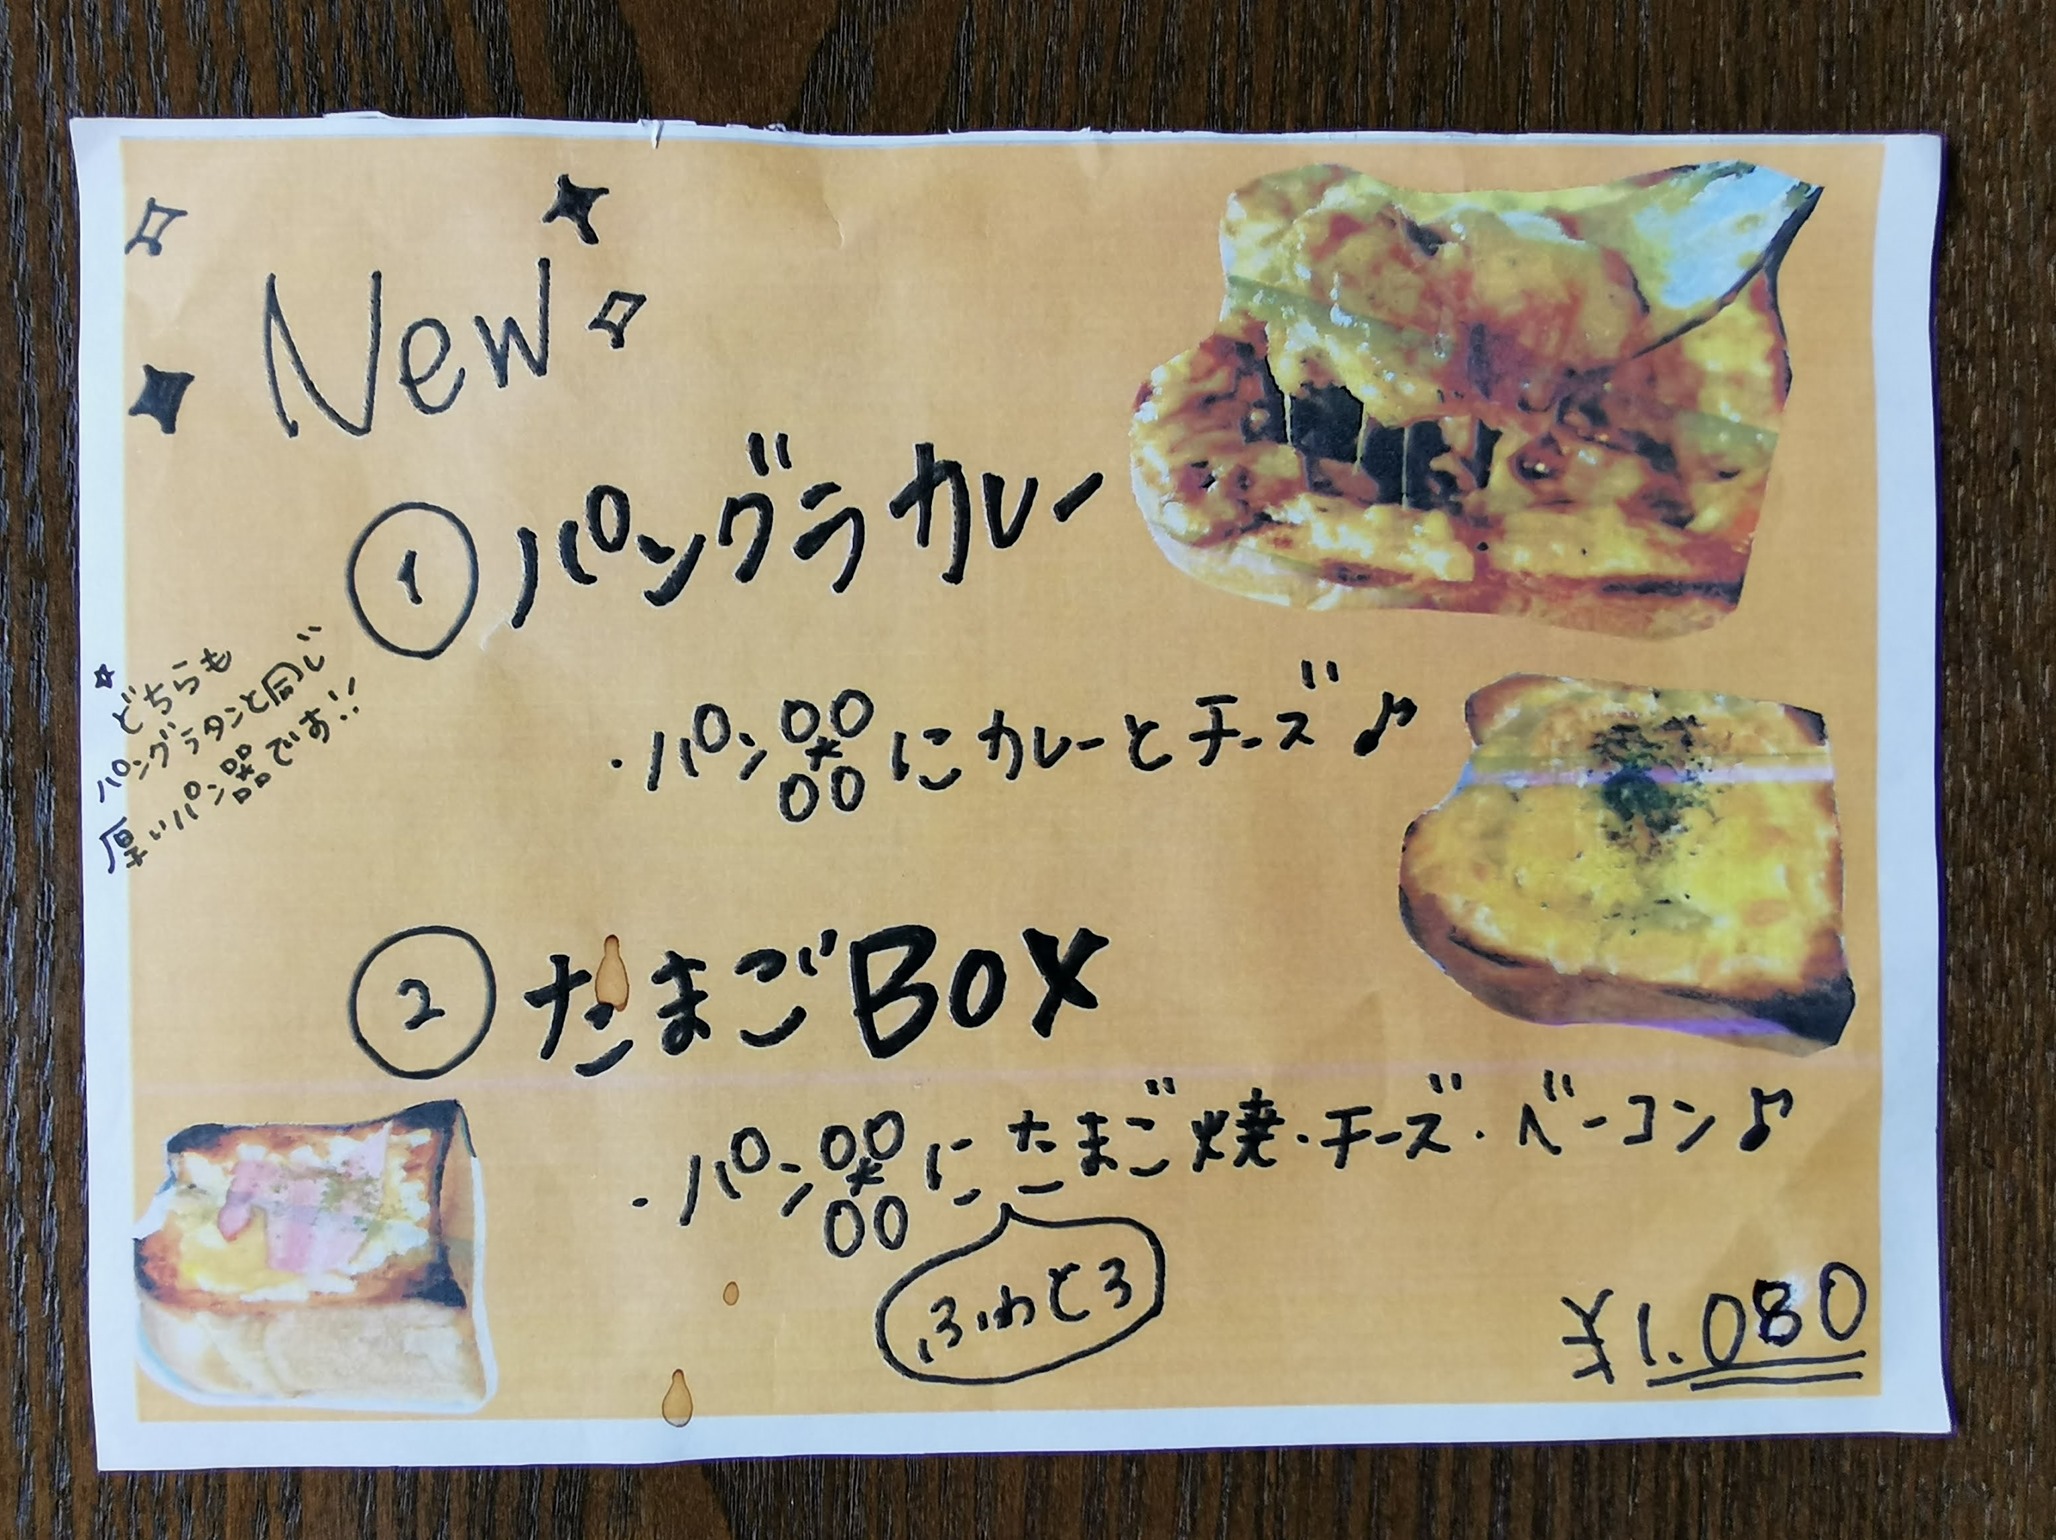 New
① パングラカレー
・パン器にカレーとチーズ♪
☆どちらも
パングラタンと同じ
厚いパン器です!!
② たまごBOX
・パン器にたまご焼・チーズ・ベーコン♪
ふわとろ
¥1.080